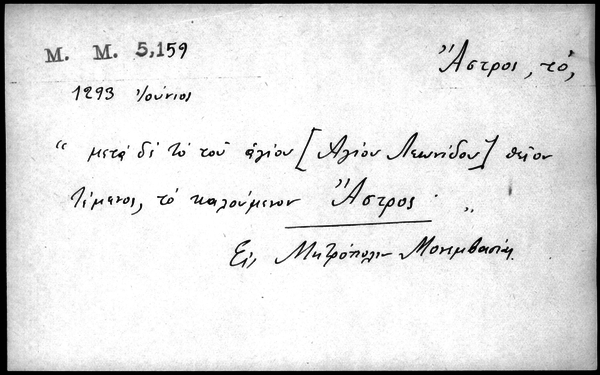 M. M. 5,159
Ἄστρος, τό,
1293 Ἰούνιος
“ μετά δέ τό τοῦ ἁγίου [Ἁγίου Λεωνίδου] θεῖον
τέμενος, τό καλούμενον Ἄστρος „
Εἰς Μητρόπολιν Μονεμβασίας.